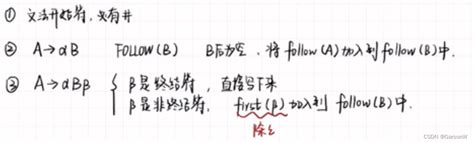 ① 文法开始符, 必有#
② A→αB FOLLOW(B) B后为空, 将follow(A)加入到follow(B)中.
③ A→αBβ { β是终结符, 直接写下来
β是非终结符, first(β)加入到follow(B)中.
除ε
CSDN @GarsonW